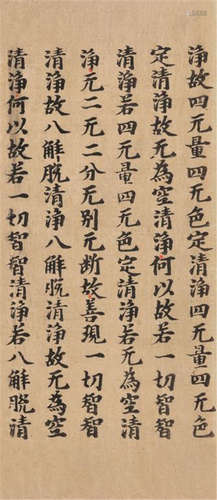 淨故四无量四无色定清淨四无量四无色
定清淨故无為空清淨何以故若一切智智
清淨若四无量四无色定清淨若无為空清
淨无二无二分无別无斷故善現一切智智
清淨故八解脫清淨八解脫清淨故无為空
清淨何以故若一切智智清淨若八解脫清